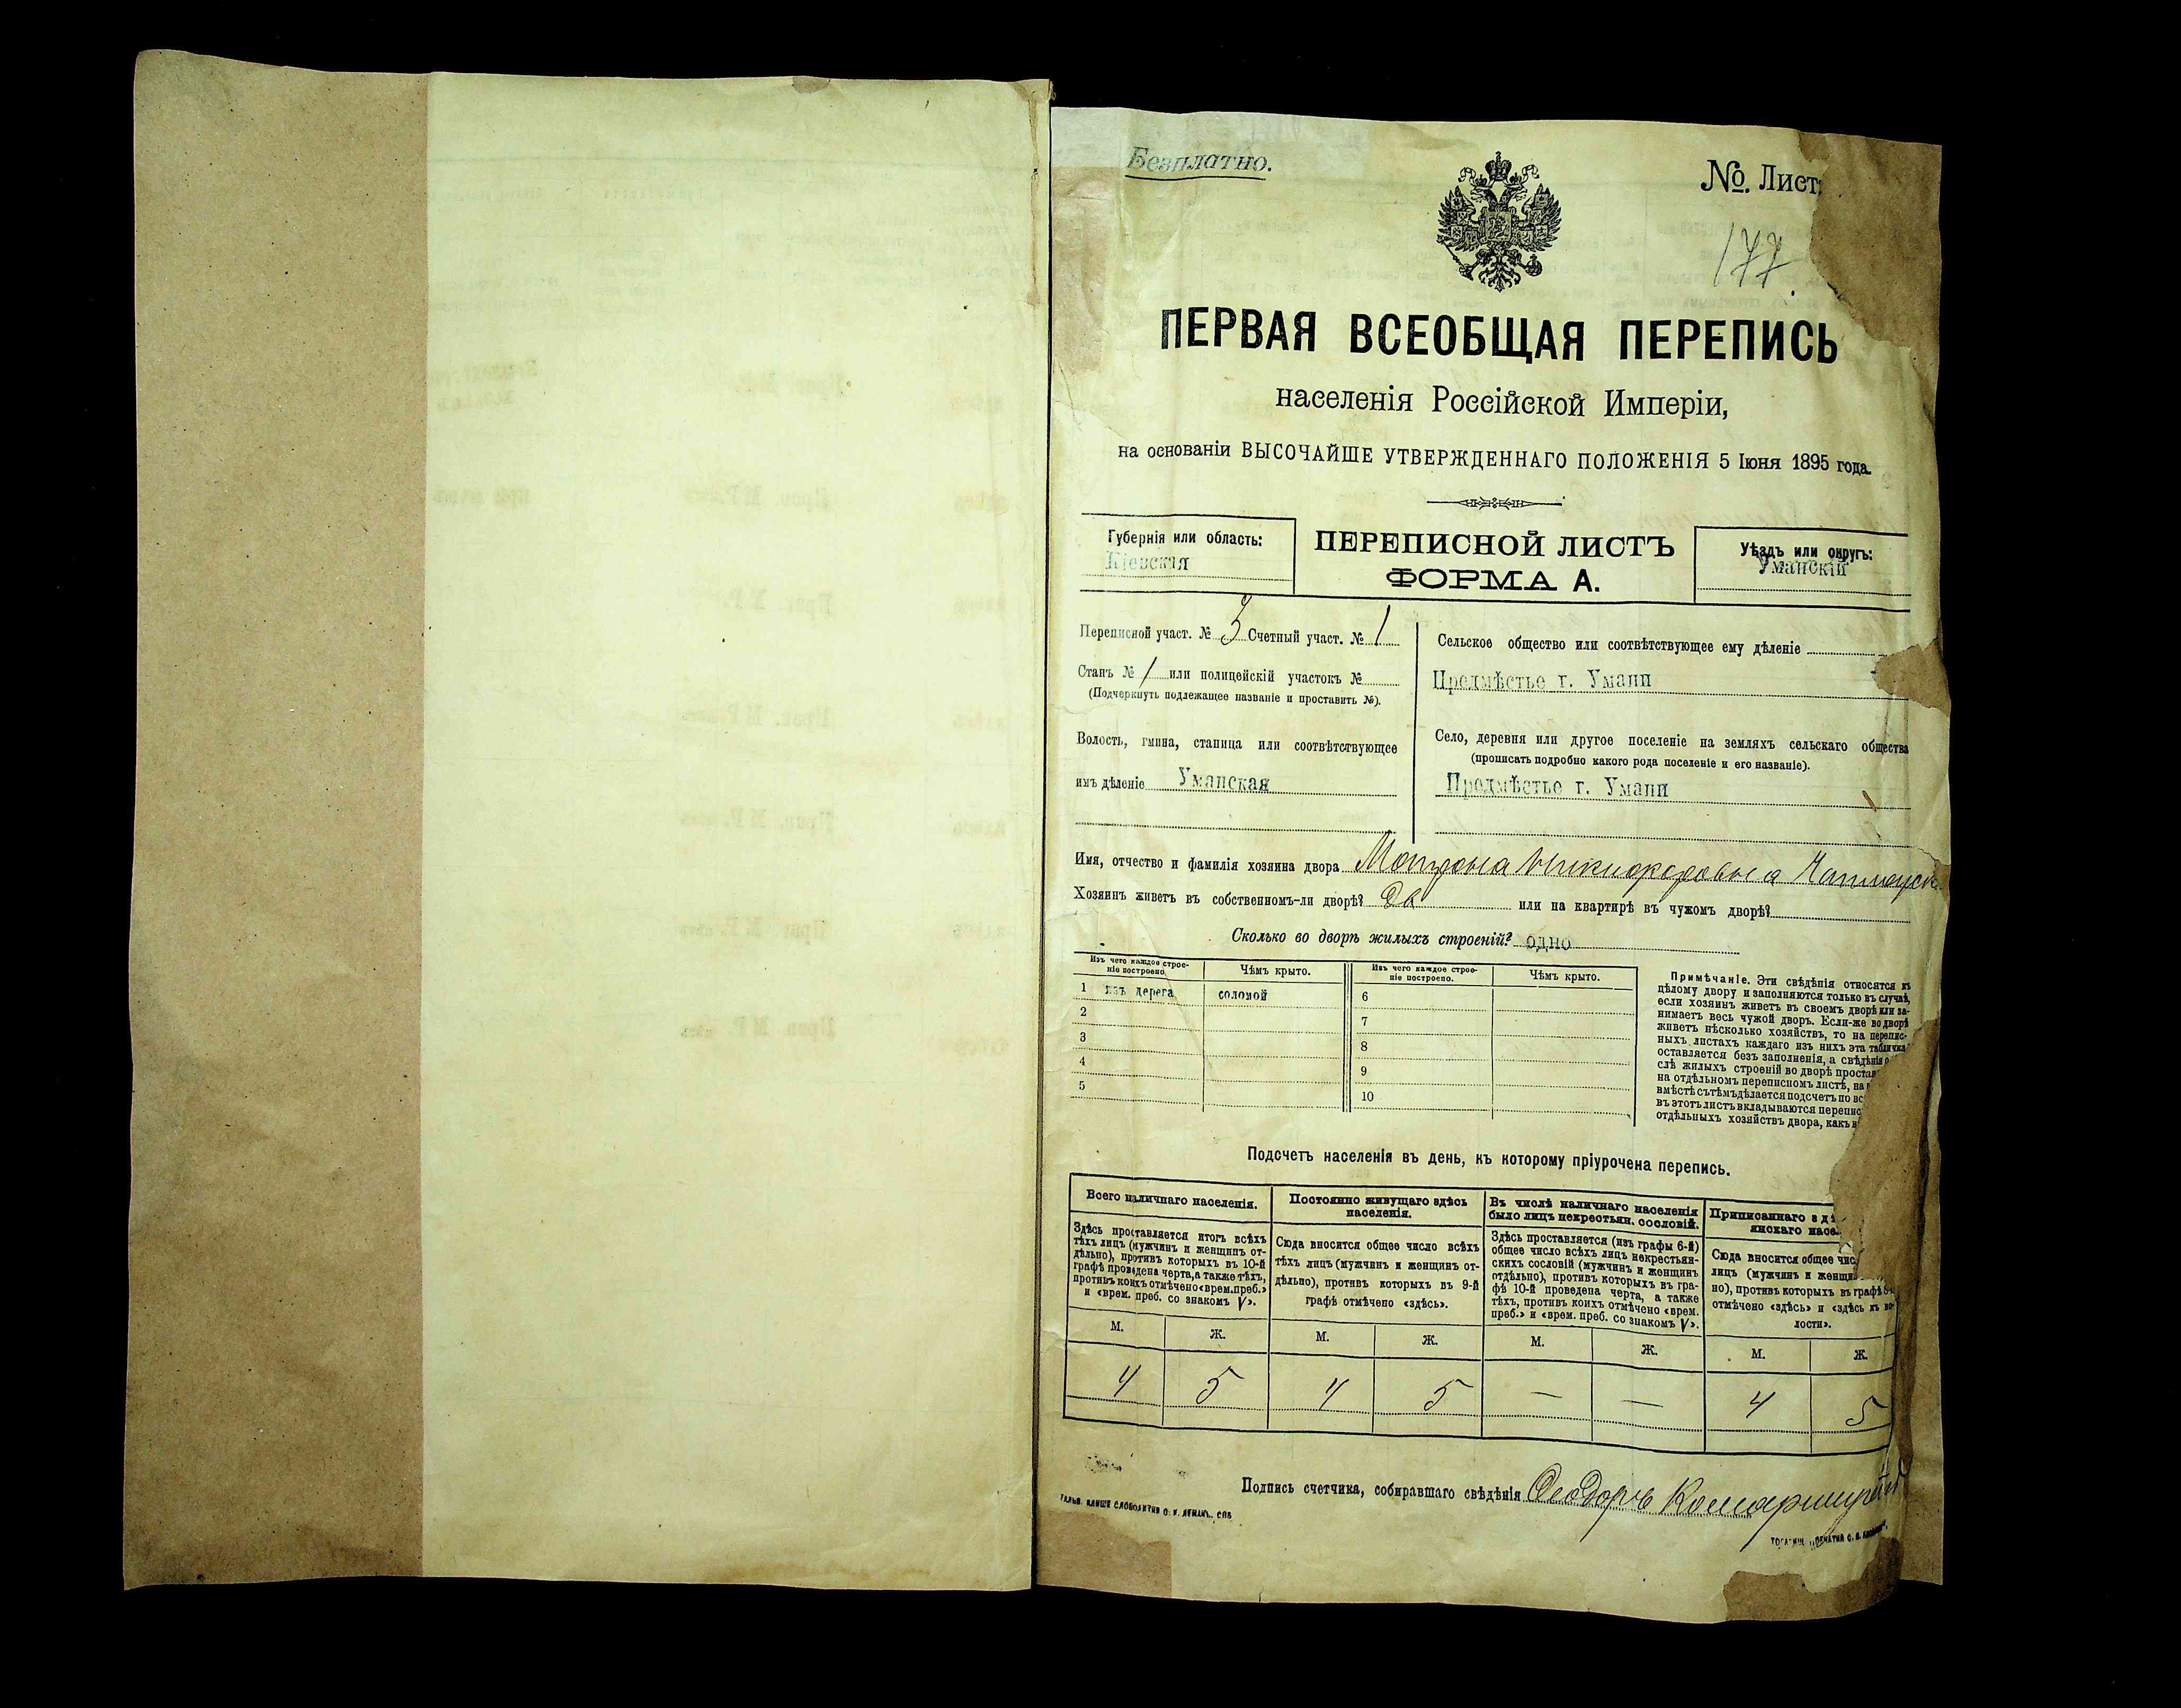 Безплатно.
№. Лист
177
ПЕРВАЯ ВСЕОБЩАЯ ПЕРЕПИСЬ
населенія Россійской Имперіи,
на основаніи ВЫСОЧАЙШЕ УТВЕРЖДЕННАГО ПОЛОЖЕНІЯ 5 Іюня 1895 года.
Губернія или область:
Кіевская
ПЕРЕПИСНОЙ ЛИСТЪ
ФОРМА А.
Уѣздъ или округъ:
Уманскій
Переписной участ. № 3 Счетный участ. № 1
Станъ № 1 или полицейскій участокъ №
(Подчеркнуть подлежащее названіе и проставить №).
Волость, гмина, станица или соотвѣтствующее
имъ дѣленіе Уманская
Сельское общество или соотвѣтствующее ему дѣленіе
Предмѣстье г. Умани
Село, деревня или другое поселеніе на земляхъ сельскаго общества
(прописать подробно какого рода поселеніе и его названіе).
Предмѣстье г. Умани
Имя, отчество и фамилія хозяина двора Матрона Никифоровна
Хозяинъ живетъ въ собственномъ-ли дворѣ? Да или на квартирѣ въ чужомъ дворѣ?
Сколько во дворѣ жилыхъ строеній? одно
Изъ чего каждое строе-
ніе построено.
Чѣмъ крыто.
Изъ чего каждое строе-
ніе построено.
Чѣмъ крыто.
1 изъ дерева соломой 6
2 7
3 8
4 9
5 10
Примѣчаніе. Эти свѣдѣнія относятся къ
цѣлому двору и заполняются только въ случаѣ,
если хозяинъ живетъ въ своемъ дворѣ или за-
нимаетъ весь чужой дворъ. Если-же во дворѣ
живетъ нѣсколько хозяйствъ, то на перепис-
ныхъ листахъ каждаго изъ нихъ эта табличка
оставляется безъ заполненія, а свѣдѣнія о
слѣ жилыхъ строеній во дворѣ простав
на отдѣльномъ переписномъ листѣ, на
вмѣстѣ съ тѣмъ дѣлается подсчетъ по вс
въ этотъ листъ вкладываются перепис
отдѣльныхъ хозяйствъ двора, какъ в
Подсчетъ населенія въ день, къ которому пріурочена перепись.
Всего наличнаго населенія.
Здѣсь проставляется итогъ всѣхъ
тѣхъ лицъ (мужчинъ и женщинъ от-
дѣльно), противъ которыхъ въ 10-й
графѣ проведена черта, а также тѣхъ,
противъ коихъ отмѣчено «врем. преб.»
и «врем. преб. со знакомъ V».
Постоянно живущаго здѣсь
населенія.
Сюда вносится общее число всѣхъ
тѣхъ лицъ (мужчинъ и женщинъ от-
дѣльно), противъ которыхъ въ 9-й
графѣ отмѣчено «здѣсь».
Въ числѣ наличнаго населенія
было лицъ некрестьян. сословій.
Здѣсь проставляется (изъ графы 6-й)
общее число всѣхъ лицъ некрестьян-
скихъ сословій (мужчинъ и женщинъ
отдѣльно), противъ которыхъ въ гра-
фѣ 10-й проведена черта, а также
тѣхъ, противъ коихъ отмѣчено «врем.
преб.» и «врем. преб. со знакомъ V».
Приписаннаго здѣ
янскаго насел
Сюда вносится общее чис
лицъ (мужчинъ и женщи
но), противъ которыхъ въ графѣ 8-й
отмѣчено «здѣсь» и «здѣсь въ во-
лости».
М. Ж. М. Ж. М. Ж. М. Ж.
4 5 4 5 — — 4 5
Подпись счетчика, собиравшаго свѣдѣнія Феодоръ